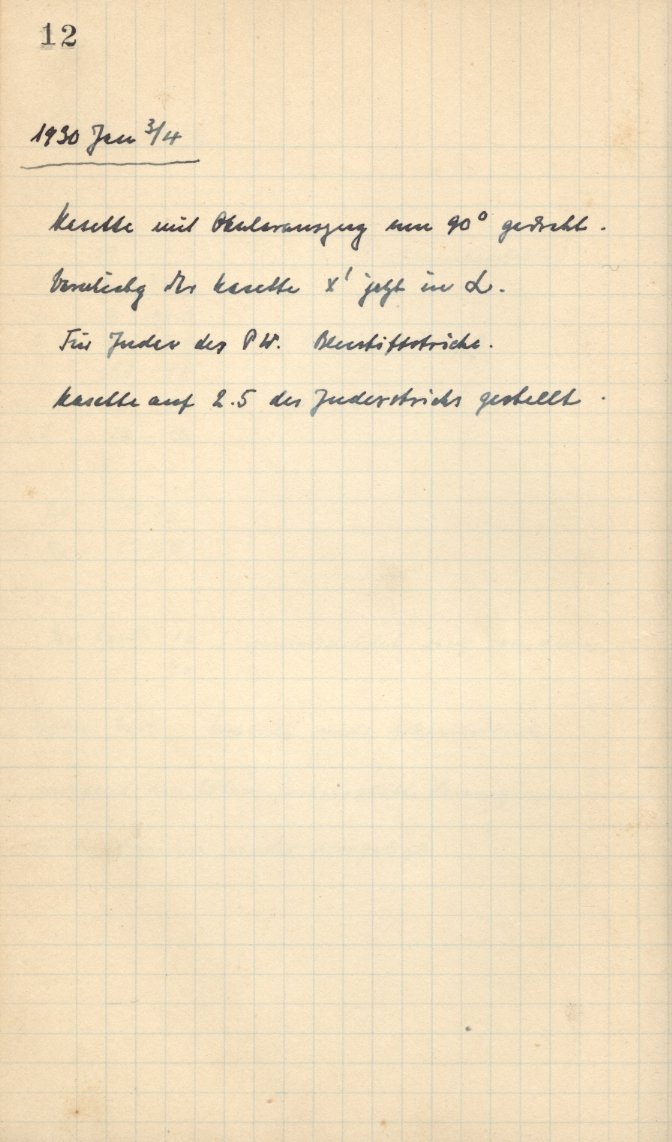 12
1930 Jan 3/4
Kasette mit Okularauszug um 90° gedreht.
der Kasette x' jetzt in α.
Für Index des PW. Bleistiftstriche.
Kasette auf 2.5 des Indexstrichs gestellt.